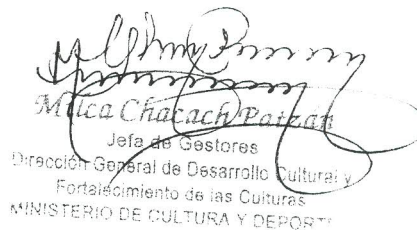 Chacach Patzán
Jefa de Gestores
Dirección General de Desarrollo Cultural y
Fortalecimiento de las Culturas
MINISTERIO DE CULTURA Y DEPORT